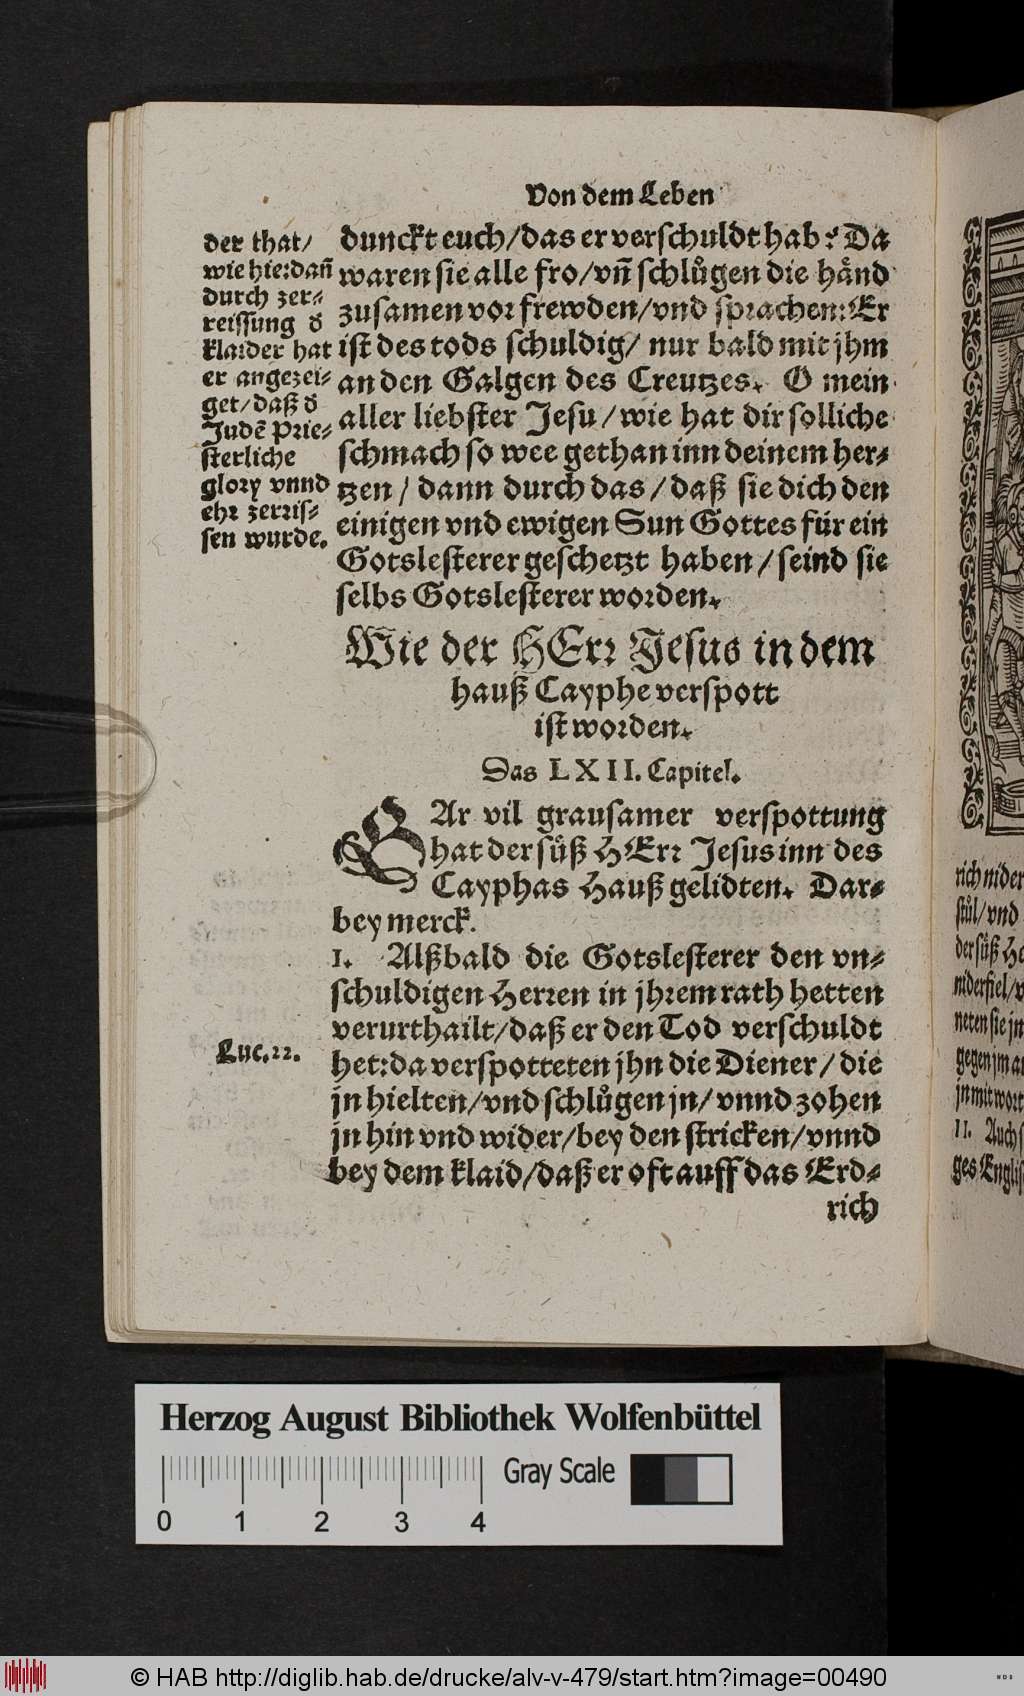 Von dem Leben
der that/
wie hie: dañ
durch zer-
reissung d
klaider hat
er angezei-
get/daß d
Judẽ Prie-
sterliche
glory vnnd
ehr zerris-
sen wurde.
dunckt euch/das er verschuldt hab? Da
waren sie alle fro/vñ schlůgen die händ
zusamen vor frewden/vnd sprachen: Er
ist des tods schuldig/ nur bald mit jhm
an den Galgen des Creutzes. O mein
aller liebster Jesu/wie hat dir solliche
schmach so wee gethan inn deinem her-
tzen/ dann durch das/daß sie dich den
einigen vnd ewigen Sun Gottes für ein
Gotslesterer geschetzt haben/seind sie
selbs Gotslesterer worden.
Wie der HErr Jesus in dem
hauß Cayphe verspott
ist worden.
Das LXII. Capitel.
GAr vil grausamer verspottung
hat der süß HErr Jesus inn des
Cayphas Hauß gelidten. Dar-
bey merck.
1. Alßbald die Gotslesterer den vn-
schuldigen Herren in jhrem rath hetten
verurthailt/daß er den Tod verschuldt
het: da verspotteten jhn die Diener/die
jn hielten/vnd schlůgen jn/vnnd zohen
jn hin vnd wider/bey den stricken/vnnd
bey dem klaid/daß er oft auff das Erd-
rich
Luc. 22.
rich nider
stůl/vnd
der süß He
niderfiel/v
neten sie jn
gegen jm a
jn mit wort
11. Auch s
ges Englis
Herzog August Bibliothek Wolfenbüttel
Gray Scale
0 1 2 3 4
© HAB http://diglib.hab.de/drucke/alv-v-479/start.htm?image=00490